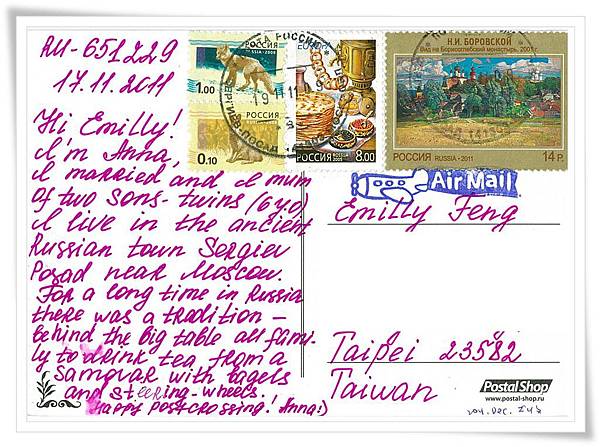 RU-651229
17.11.2011
Hi Emilly!
I'm Anna,
I married and I mum
of two sons-twins (6 y.o)
I live in the ancient
Russian town Sergiev
Posad near Moscow.
For a long time in Russia
there was a tradition –
behind the big table all fami-
ly to drink tea from a
samovar with bagels
and steering-wheels.
Happy postcrossing! Anna:)
РОССИЯ
RUSSIA-2008
1.00
РОССИЯ
0.10
EUROPA
РОССИЯ
8.00
Н.И. БОРОВСКОЙ
Вид на Борисоглебский монастырь. 2001 г.
РОССИЯ RUSSIA • 2011 14 Р.
Air Mail
Emilly Feng
Taipei 23582
Taiwan
PostalShop
www.postal-shop.ru